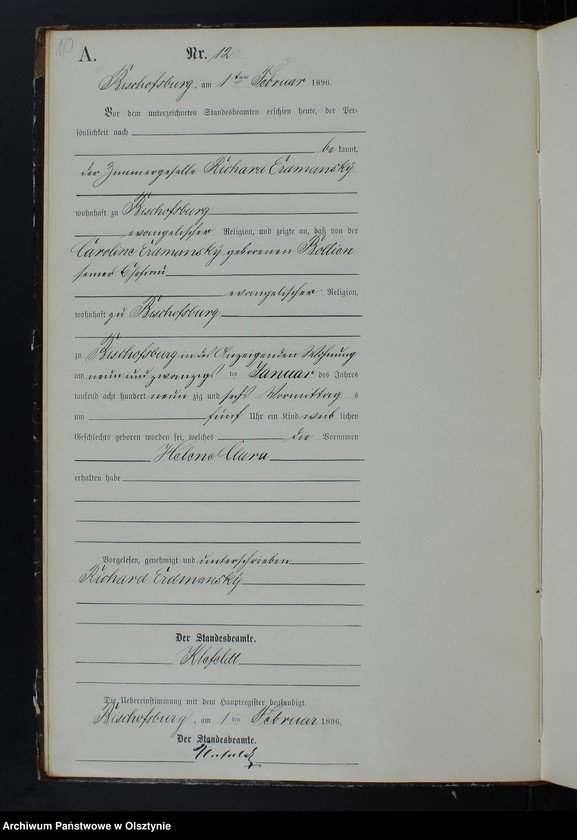 110
A.
Nr. 12
Bischofsburg, am 1ten Februar 1896.
Vor dem unterzeichneten Standesbeamten erschien heute, der Per-
sönlichkeit nach
be kannt,
der Zimmergeselle Richard Erdmansky
wohnhaft zu Bischofsburg
evangelischer Religion, und zeigte an, daß von der
Caroline Erdmansky geborenen
seiner Ehefrau
evangelischer Religion,
wohnhaft zu Bischofsburg
zu Bischofsburg in des Anzeigenden Wohnung
am neun und zwanzigsten Januar des Jahres
tausend acht hundert neun zig und sechs Vormittag s
um fünf Uhr ein Kind weib lichen
Geschlechts geboren worden sei, welches die Vornamen
Helene Clara
erhalten habe
Vorgelesen, genehmigt und unterschrieben
Richard Erdmansky
Der Standesbeamte.
Die Uebereinstimmung mit dem Hauptregister beglaubigt.
Bischofsburg, am 1ten Februar 1896.
Der Standesbeamte.
Archiwum Państwowe w Olsztynie